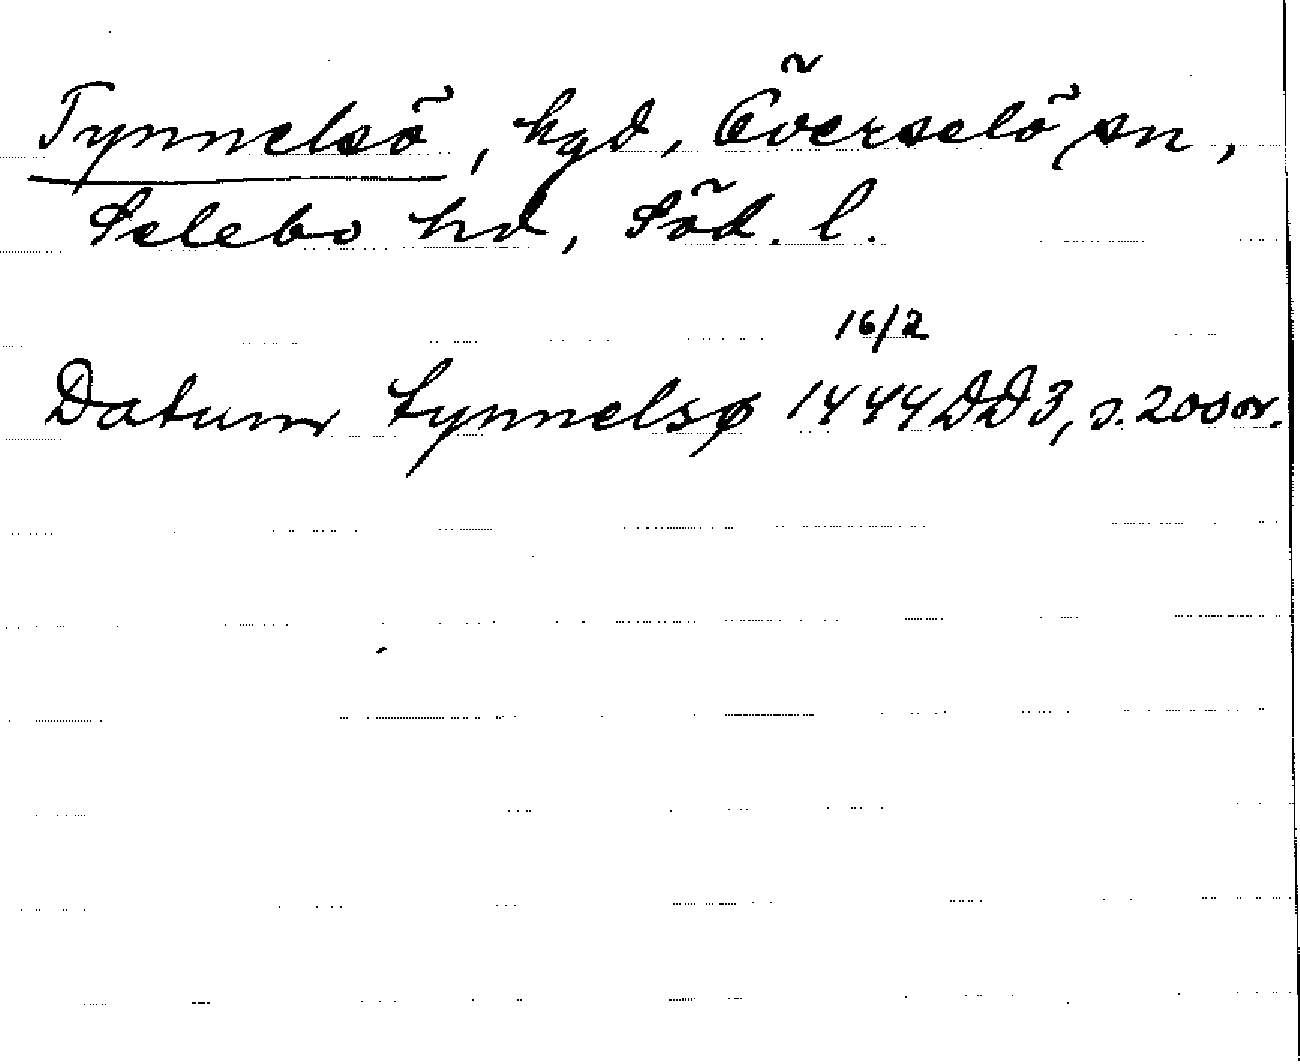 Tynnelsö, hgd, Överselö sn,
Selebo hd, Söd. l.
16/2
Datum tynnelsø 1444 DD3, s. 200 or.